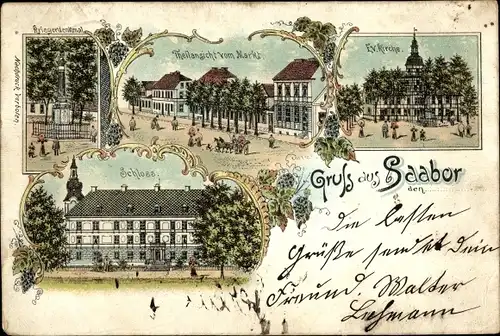 Kriegerdenkmal.
Nachdruck verboten
Theilansicht vom Markt
Ev. Kirche.
Schloss.
Gruss aus Saabor
den
Die besten
Grüße sendet Dein
Freund. Walter
Lehmann